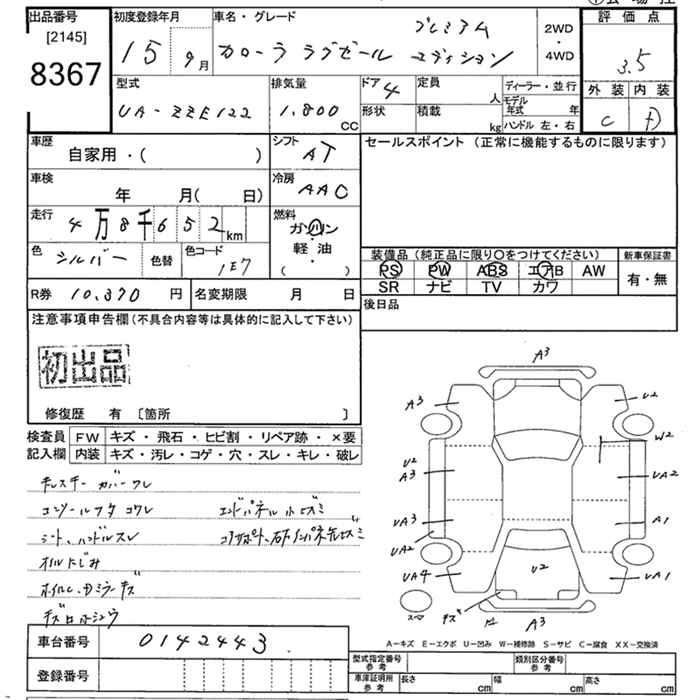 出品番号
[2145]
8367
初度登録年月
15 9月
車名・グレード
プレミアム
カローラ ラグゼール エディション
2WD
・
4WD
評価点
3.5
外装 内装
C D
型式
UA-ZZE122
排気量
1,800 CC
ドア 4
形状
定員 人
積載 kg
ディーラー・並行
モデル年式 年
ハンドル 左・右
車歴
自家用・( )
シフト
AT
セールスポイント (正常に機能するものに限ります)
車検
年 月( 日)
冷房
AAC
走行
4万8千652km
燃料
ガソリン
軽・油
( )
色
シルバー
色替
色コード
1E7
装備品 (純正品に限り○をつけてください)
新車保証書
PS PW ABS エアB AW
SR ナビ TV カワ
有・無
R券 10,370 円
名変期限 月 日
後日品
注意事項申告欄 (不具合内容等は具体的に記入して下さい)
初出品
修復歴 有 [箇所 ]
検査員
記入欄
FW キズ・飛石・ヒビ割・リペア跡・×要
内装 キズ・汚レ・コゲ・穴・スレ・キレ・破レ
コンソールフタ コワレ
エンドパネル 小ヒズミ
シート、ハンドルスレ
オイルにじみ
A3
A3
U2
W2
U2
A3
UA2
UA3
A1
UA2
UA4
U2
UA1
キズ
A3
車台番号 0142443
登録番号
A−キズ E−エクボ U−凹み W−補修跡 S−サビ C−腐食 XX−交換済
型式指定番号 参考
類別区分番号 参考
車庫証明用 参考
長さ cm
幅 cm
高さ cm